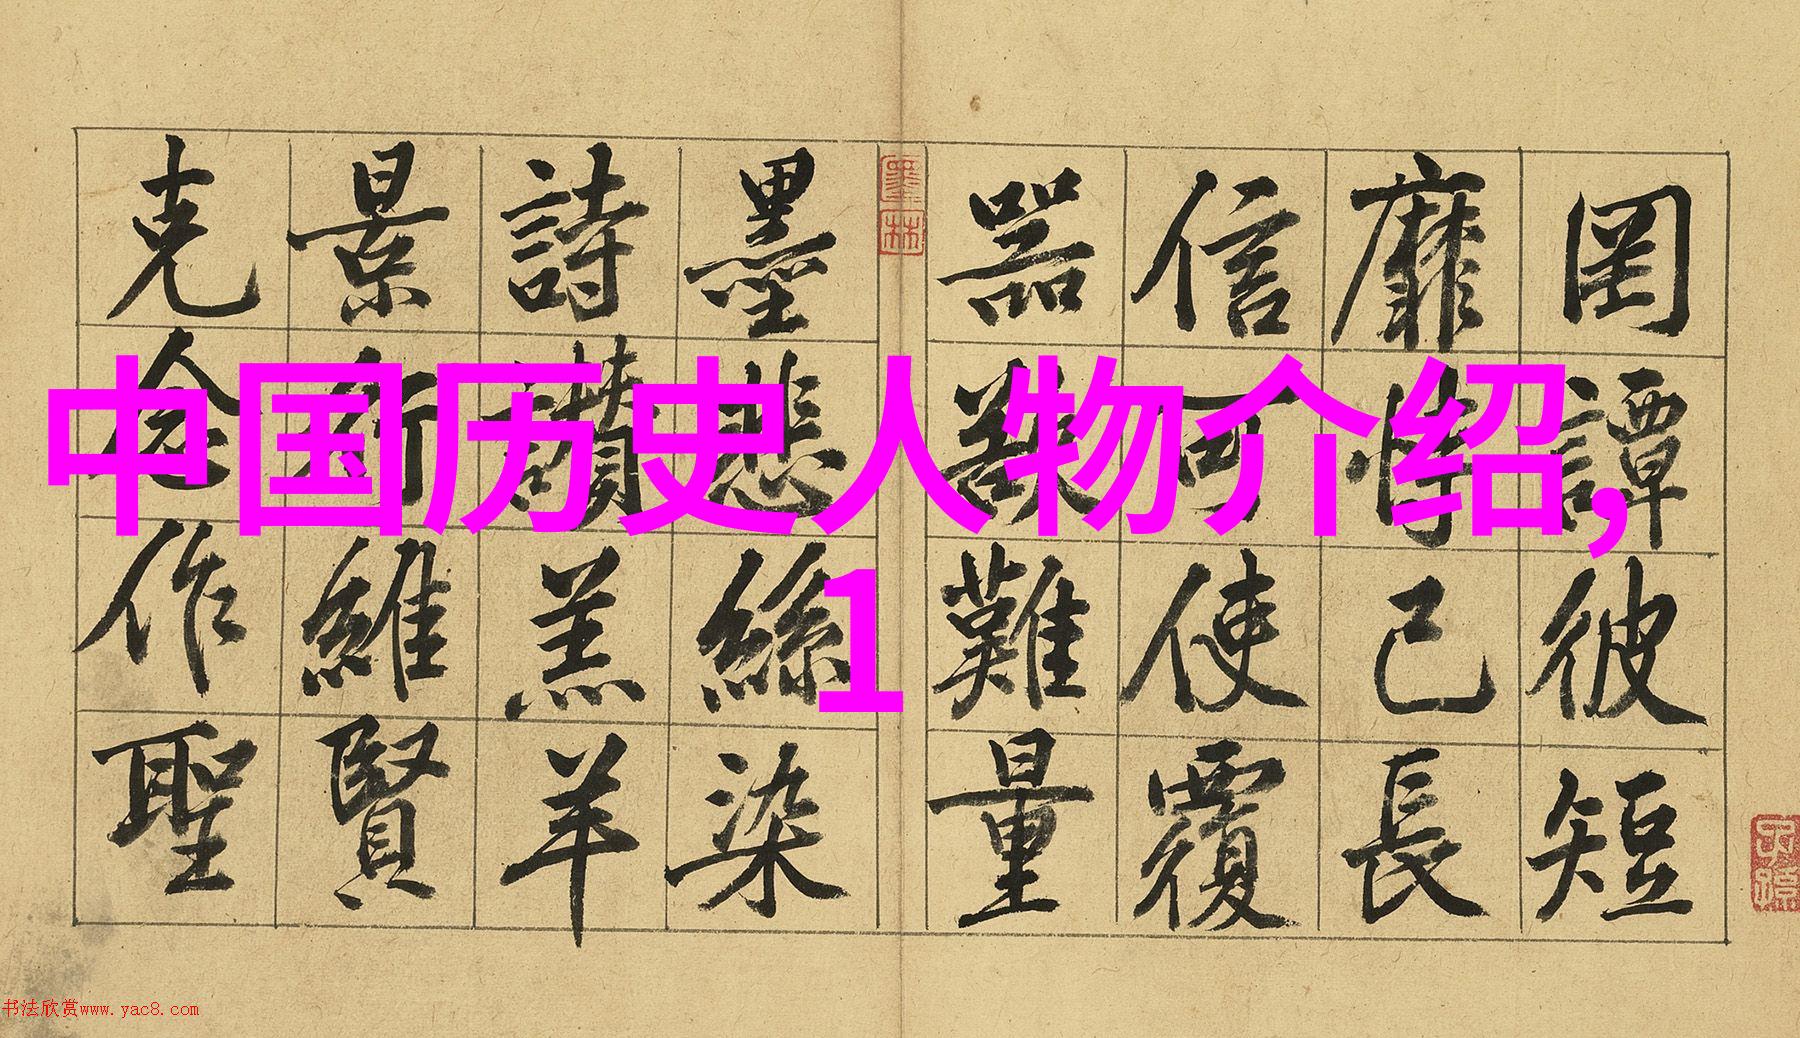 中国历史人物介绍,
1
罔譚彼短
靡恃己長
信可使覆
器欲難量
墨林
墨悲絲染
詩讚羔羊
景行維賢
克念作聖
子孫
书法欣赏www.yac8.com